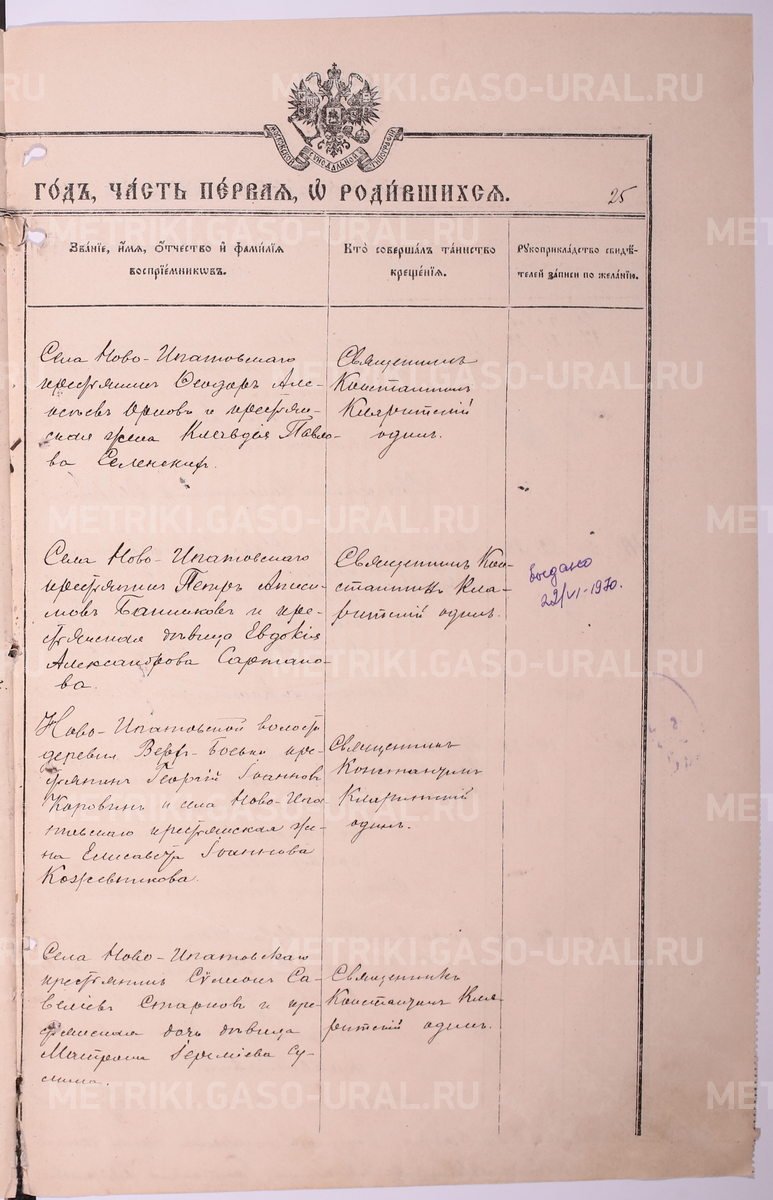 METRIKI.GASO-URAL.RU
МОСКОВСКОЙ СѴНОДАЛЬНОЙ ТИПОГРАФІИ
ГО́ДЪ, ЧА́СТЬ ПЕ́РВАЯ, Ѿ РОДИ́ВШИХСЯ.
25
Зва́ніе, и҆́мѧ, ѻ҆́тчество и҆ фами́лїѧ
воспрїе́мникѡвъ.
Кто̀ соверша́лъ та́инство
креще́нїѧ.
Рꙋкоприкла́дство свидѣ́-
телей за́писи по жела́нїю.
Села Ново-Ипатовскаго
крестьянинъ Ѳеодоръ Але-
ксѣевъ и крестьян-
ская жена Клавдія Павло-
ва
Священникъ
Константинъ
Кляритскій
одинъ.
Села Ново-Ипатовскаго
крестьянинъ Петръ Аниси-
мовъ Банниковъ и кре-
стьянская дѣвица Евдокія
Александрова Сартако-
ва.
Священникъ Кон-
стантинъ Кля-
ритскій одинъ.
выдано
22/VI-1970.
Ново-Ипатовской волости
деревни Верх-Боевки кре-
стьянинъ Георгій Іоанновъ
Коровинъ и села Ново-Ипа-
товскаго крестьянская же-
на Елисавета Іоаннова
Кожевникова.
Священникъ
Константинъ
Кляритскій
одинъ.
Села Ново-Ипатовскаго
крестьянинъ Сѵмеонъ Са-
веліевъ Старковъ и кре-
стьянская дочь дѣвица
Матрона Іереміева Су-
Священникъ
Константинъ Кля-
ритскій одинъ.